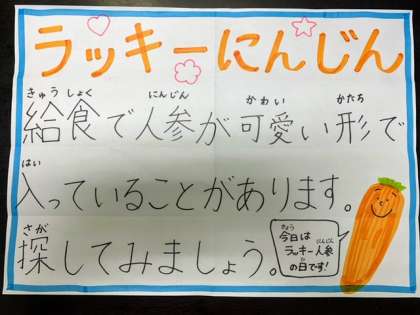 ラッキーにんじん
きゅうしょく にんじん かわい かたち
給食で人参が可愛い形で
はい
入っていることがあります。
さが
探してみましょう。
きょう
今日は
ラッキー人参
にんじん
の日です!
ひ